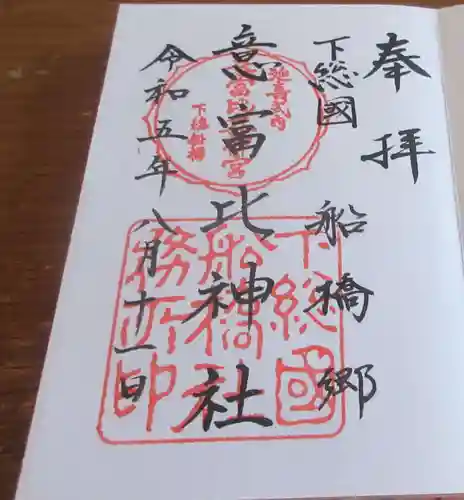 奉拝
下總國船橋郷
意富比神社
令和五年八月十一日
延喜式内
意富比神宮
下總船橋
下総國
船橋
務所印